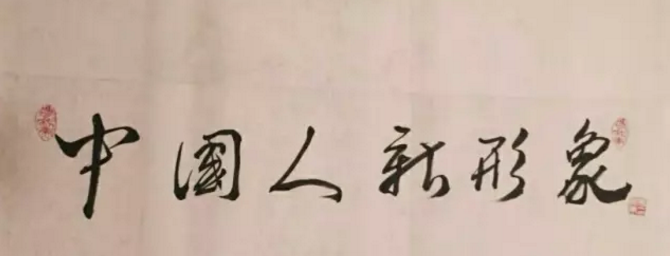 中國人新形象